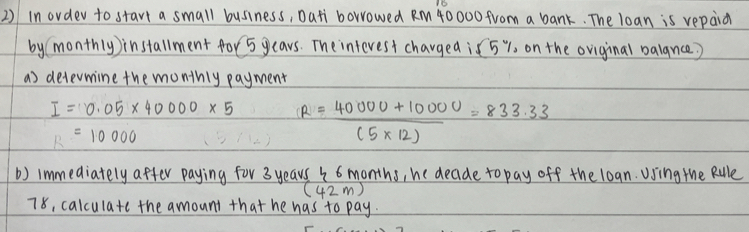 2) In order to start a small business, Dati borrowed RM 40 000 from a bank. The loan is repaid
by (monthly) installment for 5 years. The interest charged is 5% on the original balance.)
a) determine the monthly payment
I = 0.05 × 40 000 × 5 R = 40 000 + 10 000 = 833.33
= 10 000 (5 × 12)
b) Immediately after paying for 3 years & 6 months, he decide to pay off the loan. Using the Rule
(42 m)
78, calculate the amount that he has to pay.